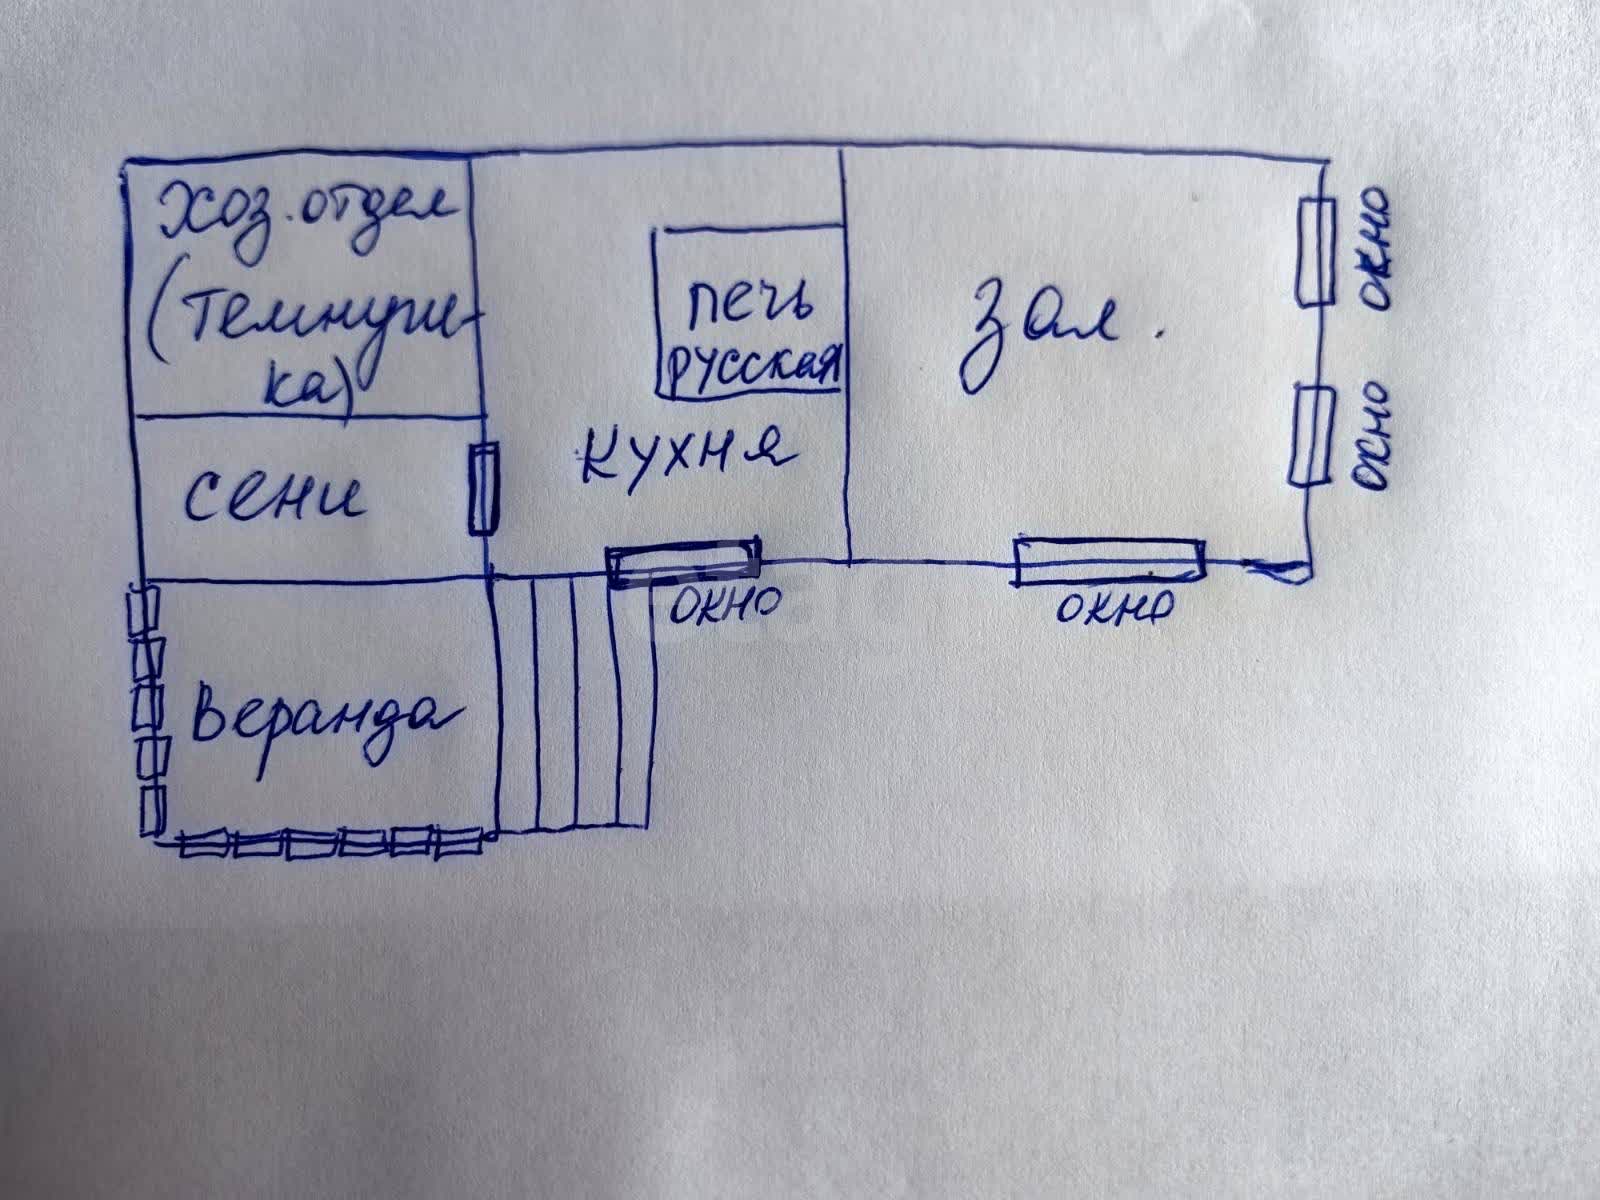 Хоз. отдел
(темнуш-
ка)
печь
русская
Зал.
окно
окно
кухня
сени
окно
окно
Веранда